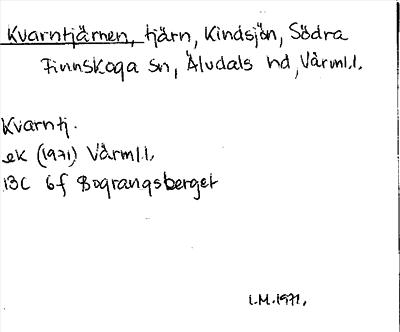 Kvarntjärnen, tjärn, Kindsjön, Södra
Finnskoga sn, Älvdals hd, Värml.l.
Kvarntj.
ek (1971) Värml.l.
13C 6f Bograngsberget
I.M. 1971.